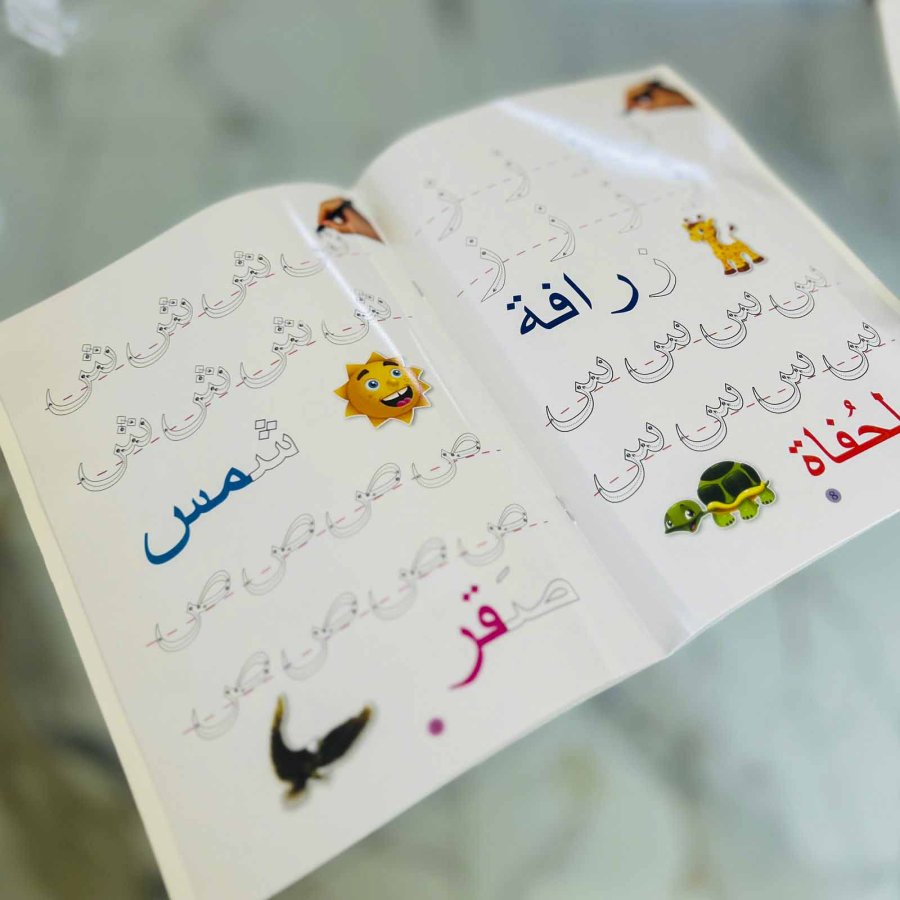 ز ز
ز ز ز
زرافة
س س س س
س س س س
لحُفاة
8
ش ش ش ش
ش ش ش ش
شمس
ص ص ص ص
ص ص ص ص
صَقر